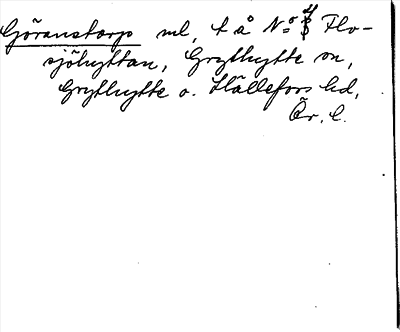 Göranstorp ml, t å No 4 Flo-
sjöhyttan, Grythytte sn,
Grythytte o. Hällefors hd,
Ör. l.